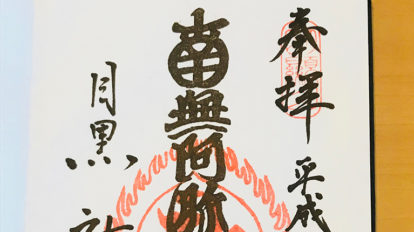 奉拝
平成
南無阿弥
目黒